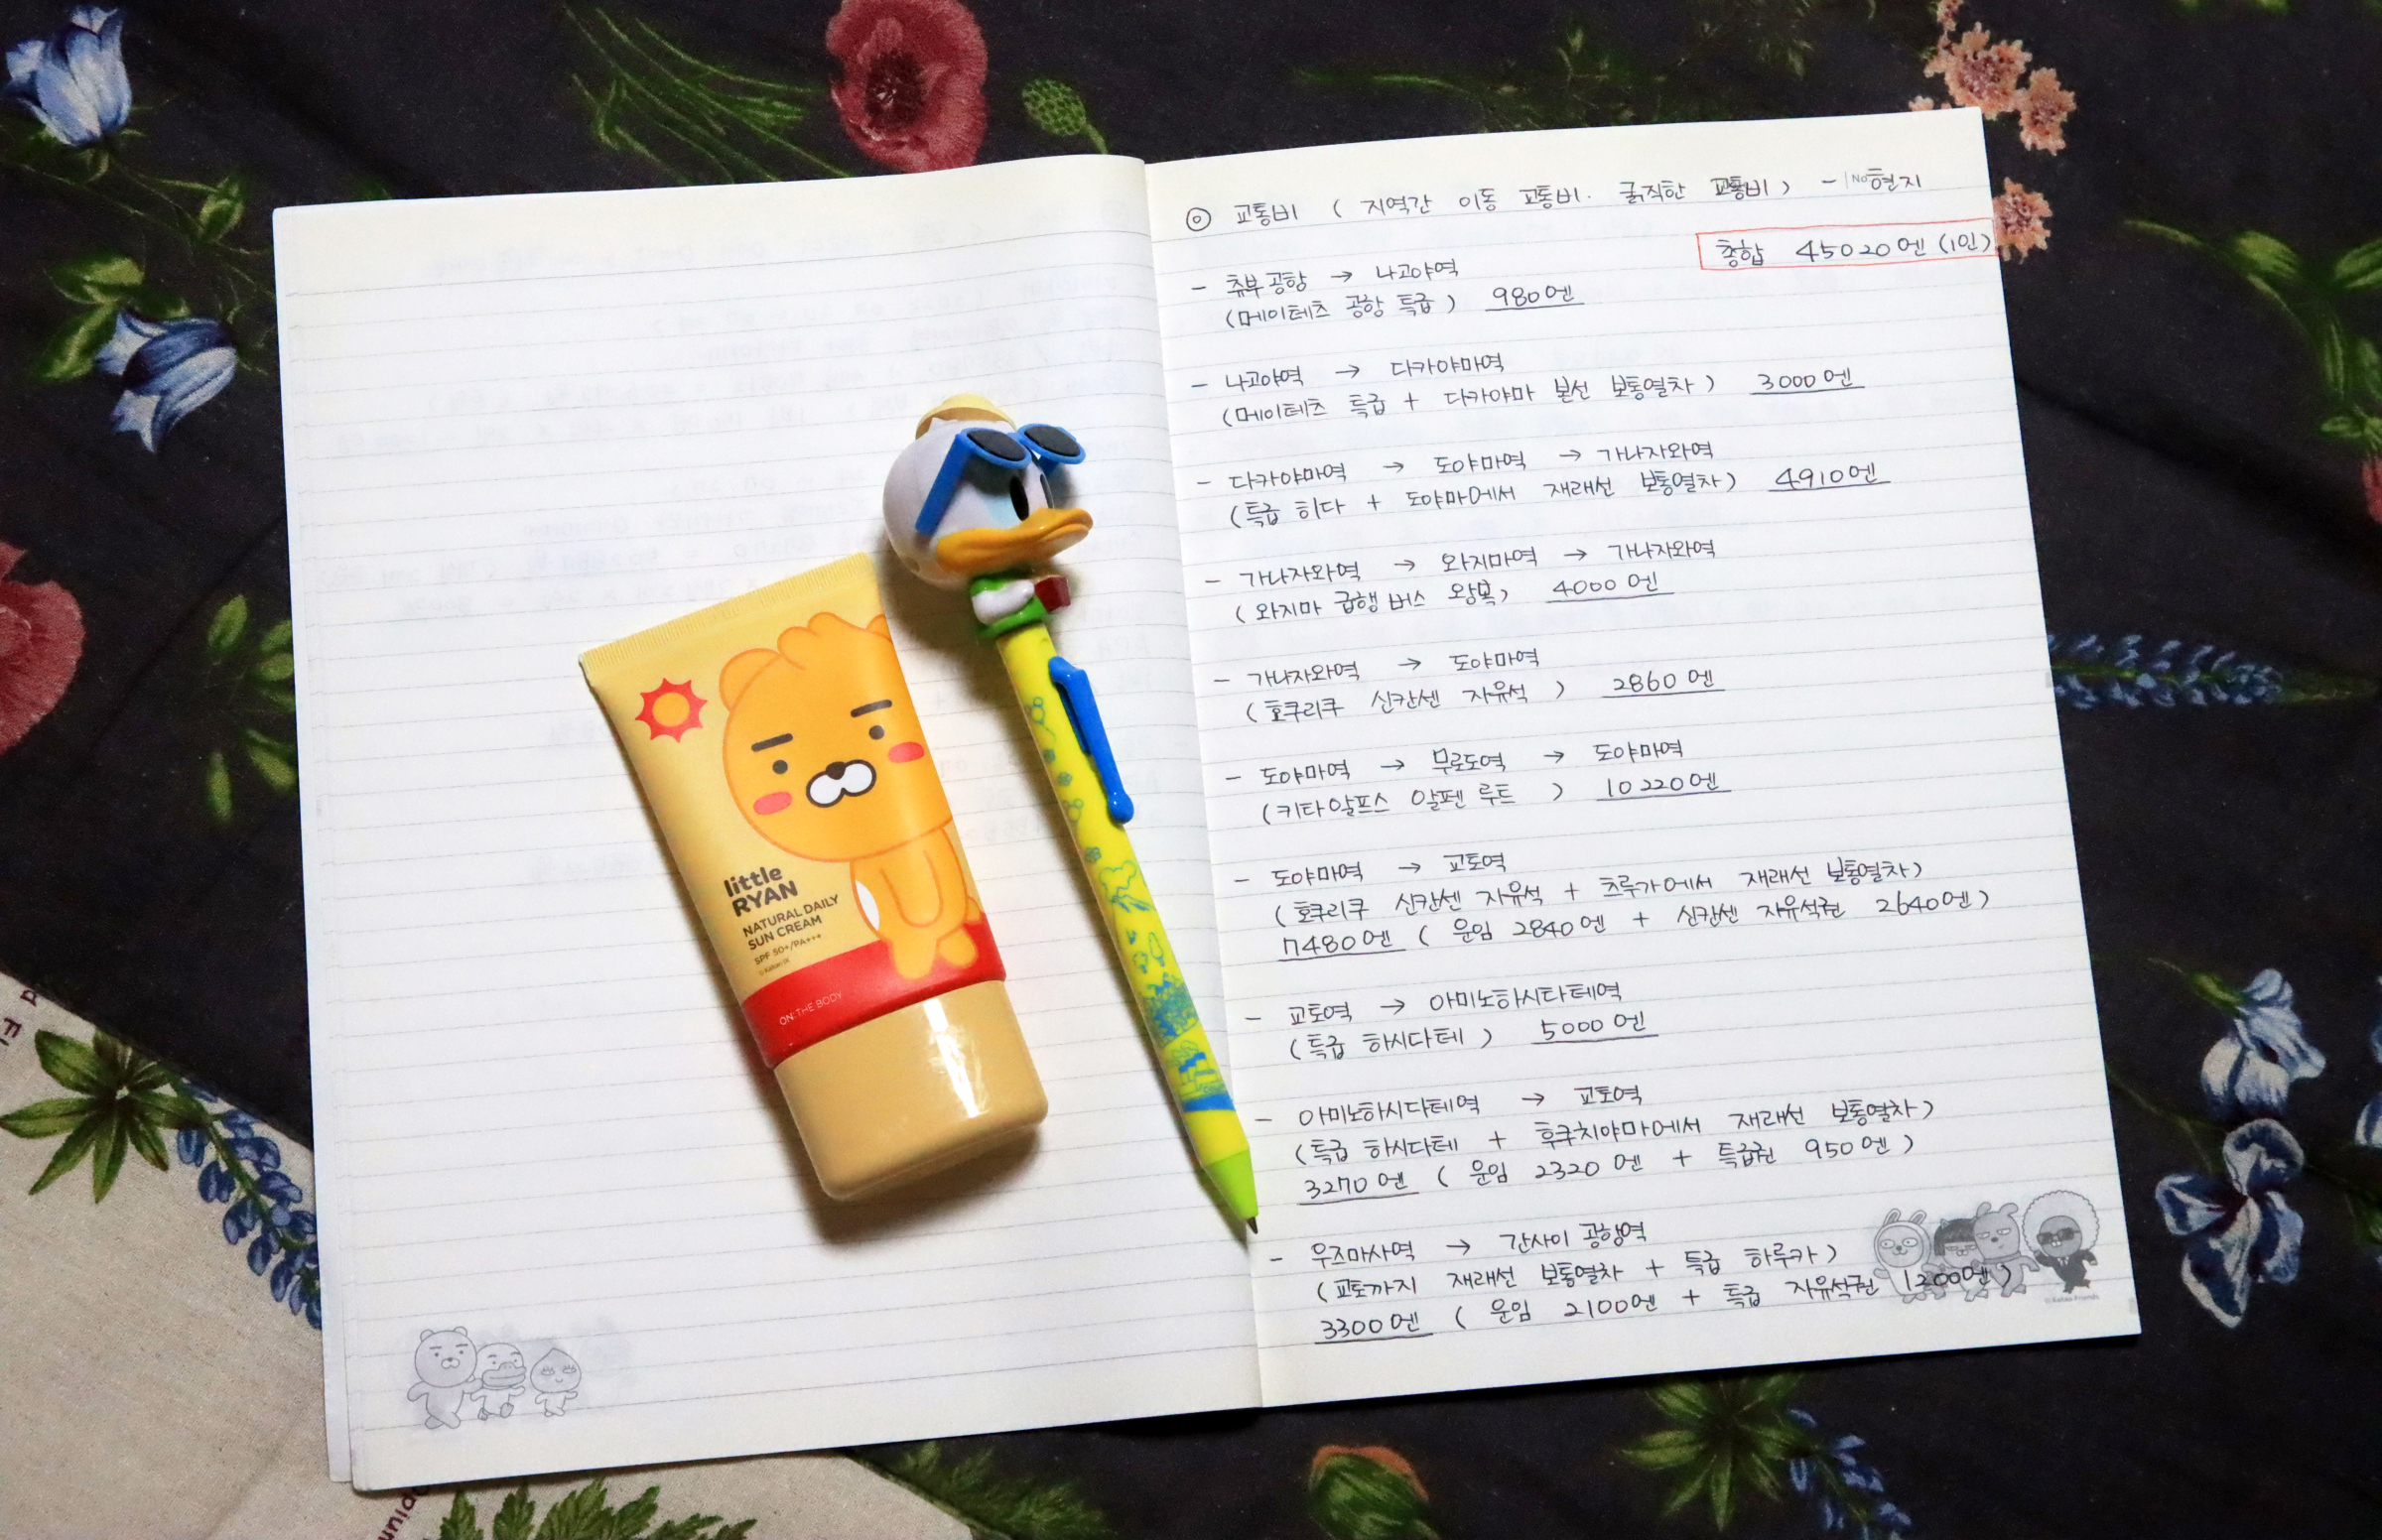 ◎ 교통비 ( 지역간 이동 교통비. 굵직한 교통비 ) - 현지
No
총합 45020엔 (1인)
- 츄부 공항 → 나고야역
(메이테츠 공항 특급) 980엔
- 나고야역 → 다카야마역
(메이테츠 특급 + 다카야마 본선 보통열차) 3000엔
- 다카야마역 → 도야마역 → 가나자와역
(특급 히다 + 도야마에서 재래선 보통열차) 4910엔
- 가나자와역 → 와지마역 → 가나자와역
(와지마 급행 버스 왕복) 4000엔
- 가나자와역 → 도야마역
(호쿠리쿠 신칸센 자유석) 2860엔
- 도야마역 → 무로도역 → 도야마역
(키타알프스 알펜 루트) 10220엔
- 도야마역 → 교토역
(호쿠리쿠 신칸센 자유석 + 츠루가에서 재래선 보통열차)
7480엔 ( 운임 2840엔 + 신칸센 자유석권 2640엔)
- 교토역 → 아미노하시다테역
(특급 하시다테) 5000엔
- 아미노하시다테역 → 교토역
(특급 하시다테 + 후쿠치야마에서 재래선 보통열차)
3270엔 ( 운임 2320엔 + 특급권 950엔)
- 우즈마사역 → 간사이 공항역
(교토까지 재래선 보통열차 + 특급 하루카)
3300엔 ( 운임 2100엔 + 특급 자유석권 1200엔)
little
RYAN
NATURAL DAILY
SUN CREAM
SPF 50+/PA+++
© Kakao IX
ON: THE BODY
© Kakao Friends